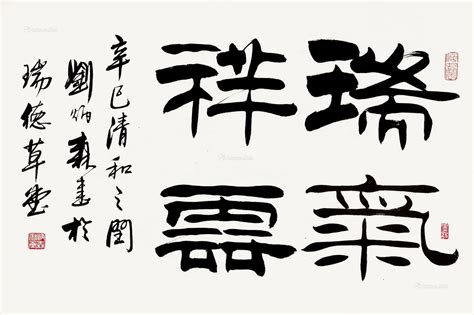 瑞氣
祥雲
辛巳清和之閏
劉炳森書於
瑞德草堂